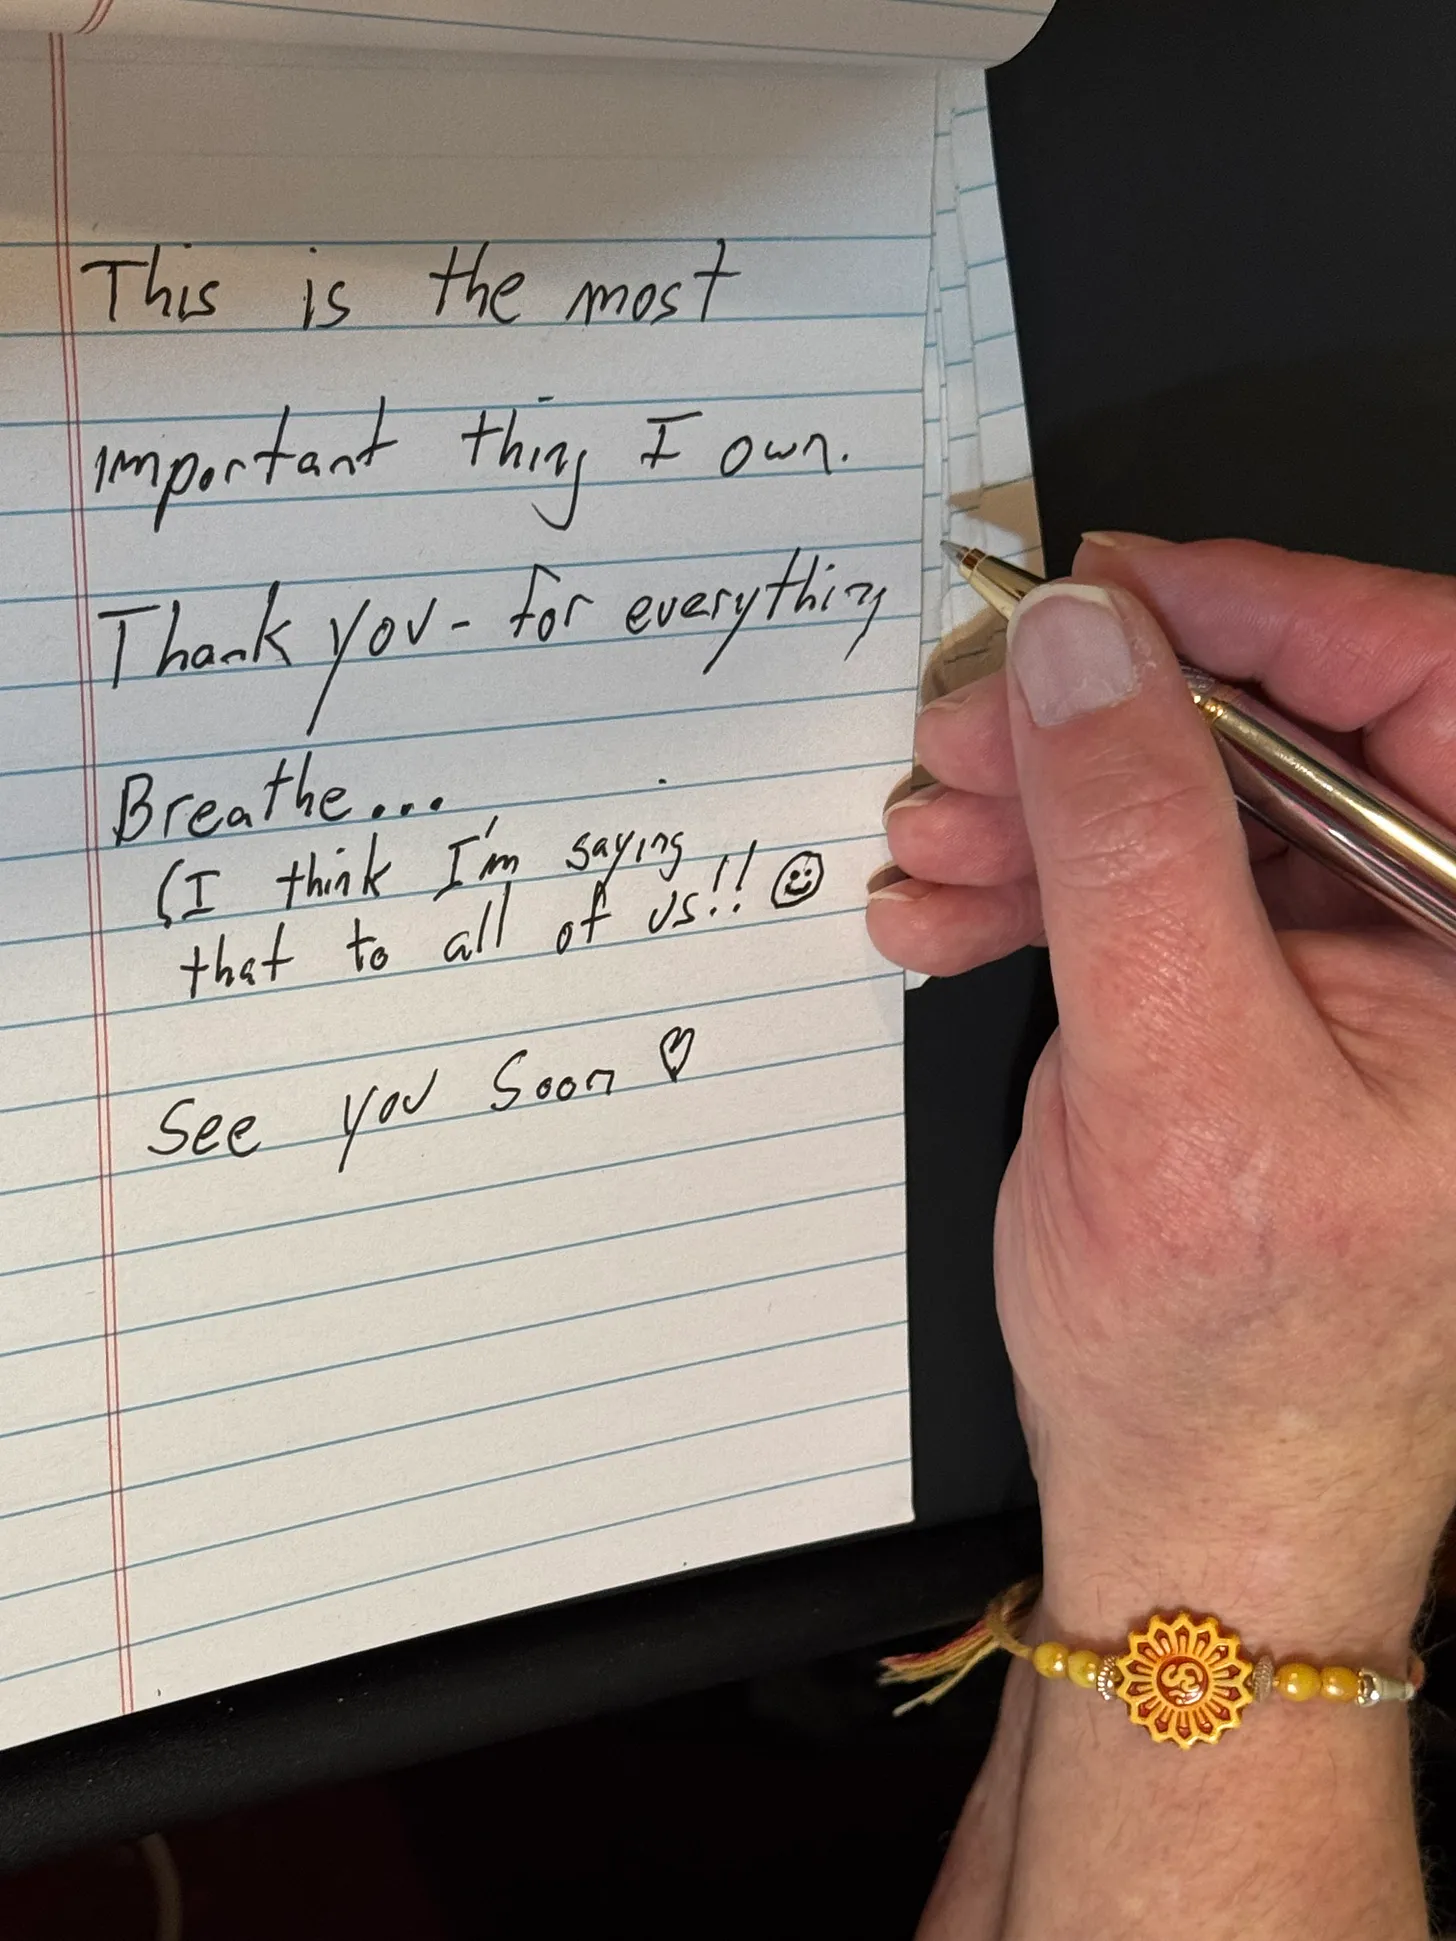 This is the most
important thing I own.
Thank you - for everything
Breathe...
(I think I'm saying
that to all of us!! ☺
See you soon ♡
ॐ